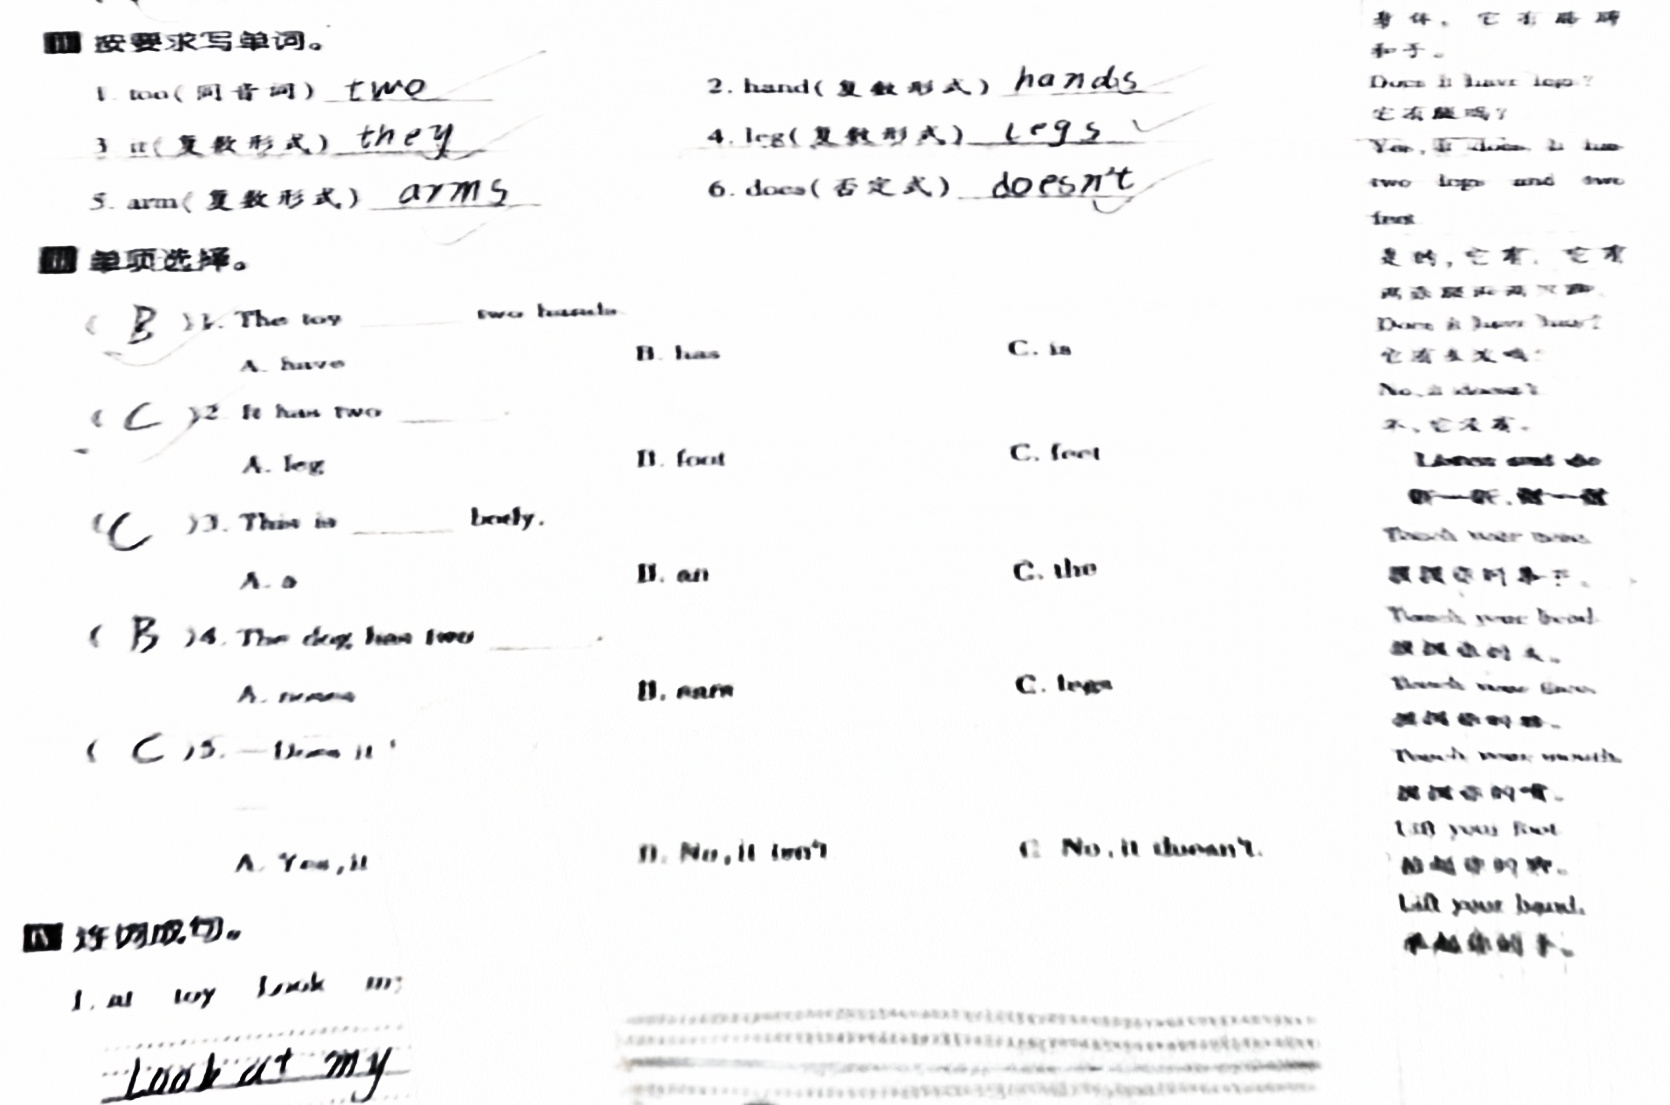 按要求写单词。
1. too(同音词) two
2. hand(复数形式) hands
3. it(复数形式) they
4. leg(复数形式) legs
5. arm(复数形式) arms
6. does(否定式) doesn't
III 单项选择。
( B )1. The toy ______ two hands.
A. have B. has C. is
( C )2. It has two ______.
A. leg B. foot C. feet
( C )3. This is ______ body.
A. a B. an C. the
( B )4. The dog has two ______.
A. B. ears C. legs
( C )5. —Does it
A. Yes, it B. No, it isn't C. No, it doesn't.
IV 连词成句。
1. at toy Look my
Look at my
和手。
Does it have legs?
它有腿吗?
Yes, it does. It has
two legs and two
feet.
是的,它有。它有
No, it doesn't.
不,它没有。
Listen and do
听一听,做一做
Touch your nose.
摸摸你的鼻子。
Touch your head.
摸摸你的头。
摸摸你的
Touch your mouth.
摸摸你的嘴。
Lift your foot.
抬起你的脚。
Lift your hand.
举起你的手。